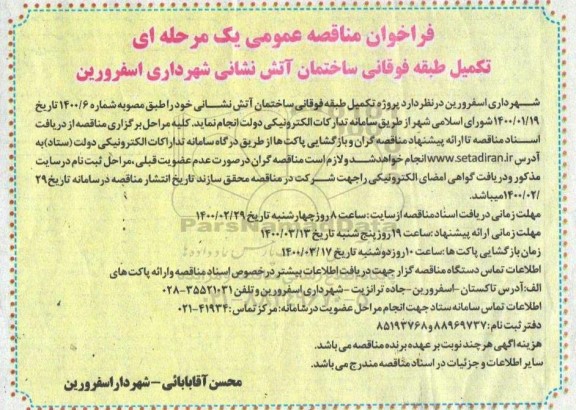 فراخوان مناقصه عمومی یک مرحله ای
تکمیل طبقه فوقانی ساختمان آتش نشانی شهرداری اسفرورین
شهرداری اسفرورین در نظر دارد پروژه تکمیل طبقه فوقانی ساختمان آتش نشانی خود را طبق مصوبه شماره ۱۴۰۰/۶ تاریخ
۱۴۰۰/۰۱/۱۹ شورای اسلامی شهر از طریق سامانه تدارکات الکترونیکی دولت انجام نماید. کلیه مراحل برگزاری مناقصه از دریافت
اسناد مناقصه تا ارائه پیشنهاد مناقصه گران و بازگشایی پاکت ها از طریق درگاه سامانه تدارکات الکترونیکی دولت (ستاد) به
آدرس www.setadiran.ir انجام خواهد شد و لازم است مناقصه گران در صورت عدم عضویت قبلی، مراحل ثبت نام در سایت
مذکور و دریافت گواهی امضای الکترونیکی را جهت شرکت در مناقصه محقق سازند تاریخ انتشار مناقصه در سامانه تاریخ ۲۹
/۱۴۰۰/۰۲ میباشد.
مهلت زمانی دریافت اسناد مناقصه از سایت: ساعت ۸ روز چهارشنبه تاریخ ۱۴۰۰/۰۲/۲۹
مهلت زمانی ارائه پیشنهاد: ساعت ۱۹ روز پنج شنبه تاریخ ۱۴۰۰/۰۳/۱۳
زمان بازگشایی پاکت ها: ساعت ۱۰ روز دوشنبه تاریخ ۱۴۰۰/۰۳/۱۷
اطلاعات تماس دستگاه مناقصه گزار جهت دریافت اطلاعات بیشتر در خصوص اسناد مناقصه و ارائه پاکت های
الف: آدرس تاکستان -اسفرورین- جاده ترانزیت - شهرداری اسفرورین و تلفن ۳۵۵۲۱۰۳۱-۰۲۸
اطلاعات تماس سامانه ستاد جهت انجام مراحل عضویت در شامانه: مرکز تماس: ۴۱۹۳۴-۰۲۱
دفتر ثبت نام: ۸۸۹۶۹۷۳۷ و ۸۵۱۹۳۷۶۸
هزینه آگهی هر چند نوبت بر عهده برنده مناقصه می باشد.
سایر اطلاعات و جزئیات در اسناد مناقصه مندرج می باشد.
محسن آقابابائی - شهردار اسفرورین